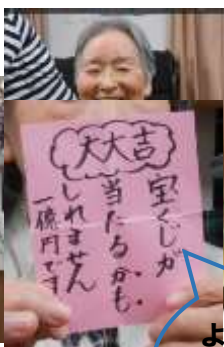 大大吉
宝くじが
当たるかも
しれません
一億円です
よ